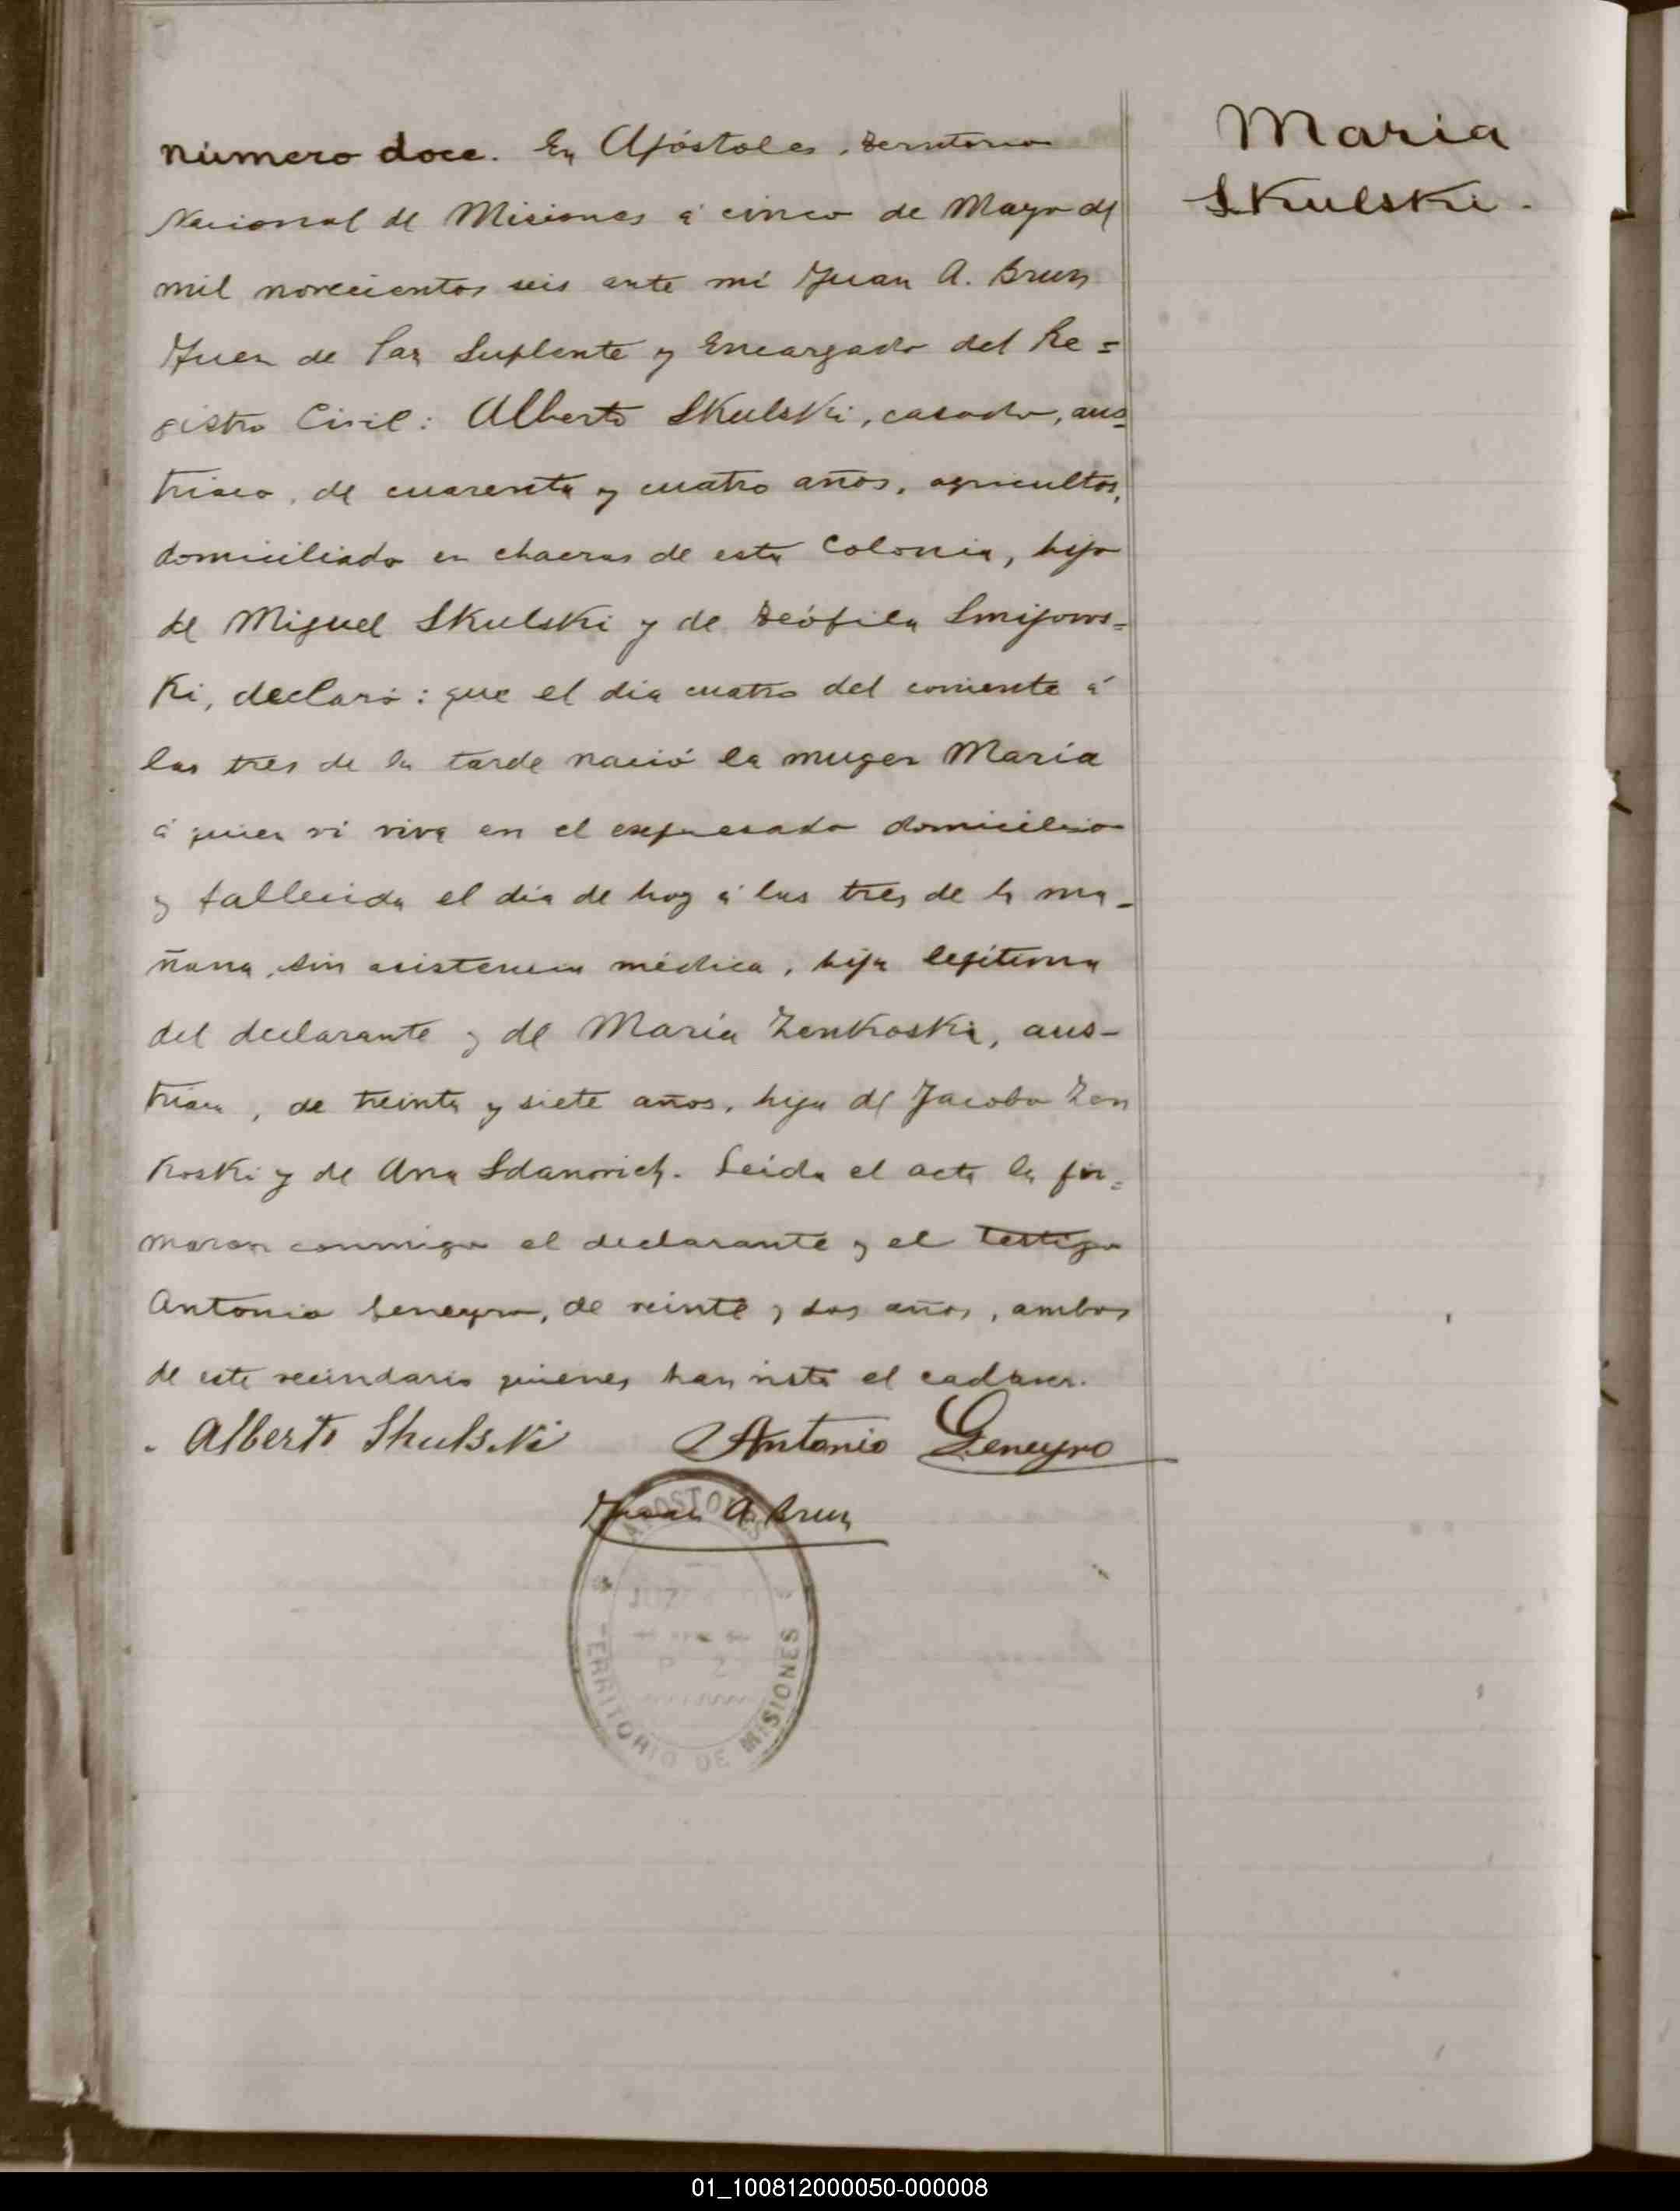 Maria
Skulski.
Número doce. En Apóstoles, Territorio
Nacional de Misiones á cinco de Mayo de
mil novecientos seis ante mí Juan A. Brun
Juez de Paz Suplente y Encargado del Re=
gistro Civil: Alberto Skulski, casado, aus=
triaco, de cuarenta y cuatro años, agricultor,
domiciliado en chacras de esta Colonia, hijo
de Miguel Skulski y de Teófila Smijows=
ki, declaró: que el dia cuatro del corriente á
las tres de la tarde nació la muger María
á quien ví viva en el expresado domicilio
y fallecida el día de hoy á las tres de la ma-
ñana, sin asistencia médica, hija legítima
del declarante y de María Zenkoski, aus-
triaca, de treinta y siete años, hija de Jacobo Zen
koski y de Ana Sdanovich. Leida el acta la fir=
maron conmigo el declarante y el testigo
Antonio Geneyro, de veinte y dos años, ambos
de este vecindario quienes han visto el cadaver.
Alberto Skulski Antonio Geneyro
Juan A. Brun
APOSTOLES
JUZ
P Z
TERRITORIO DE MISIONES
01_100812000050-000008